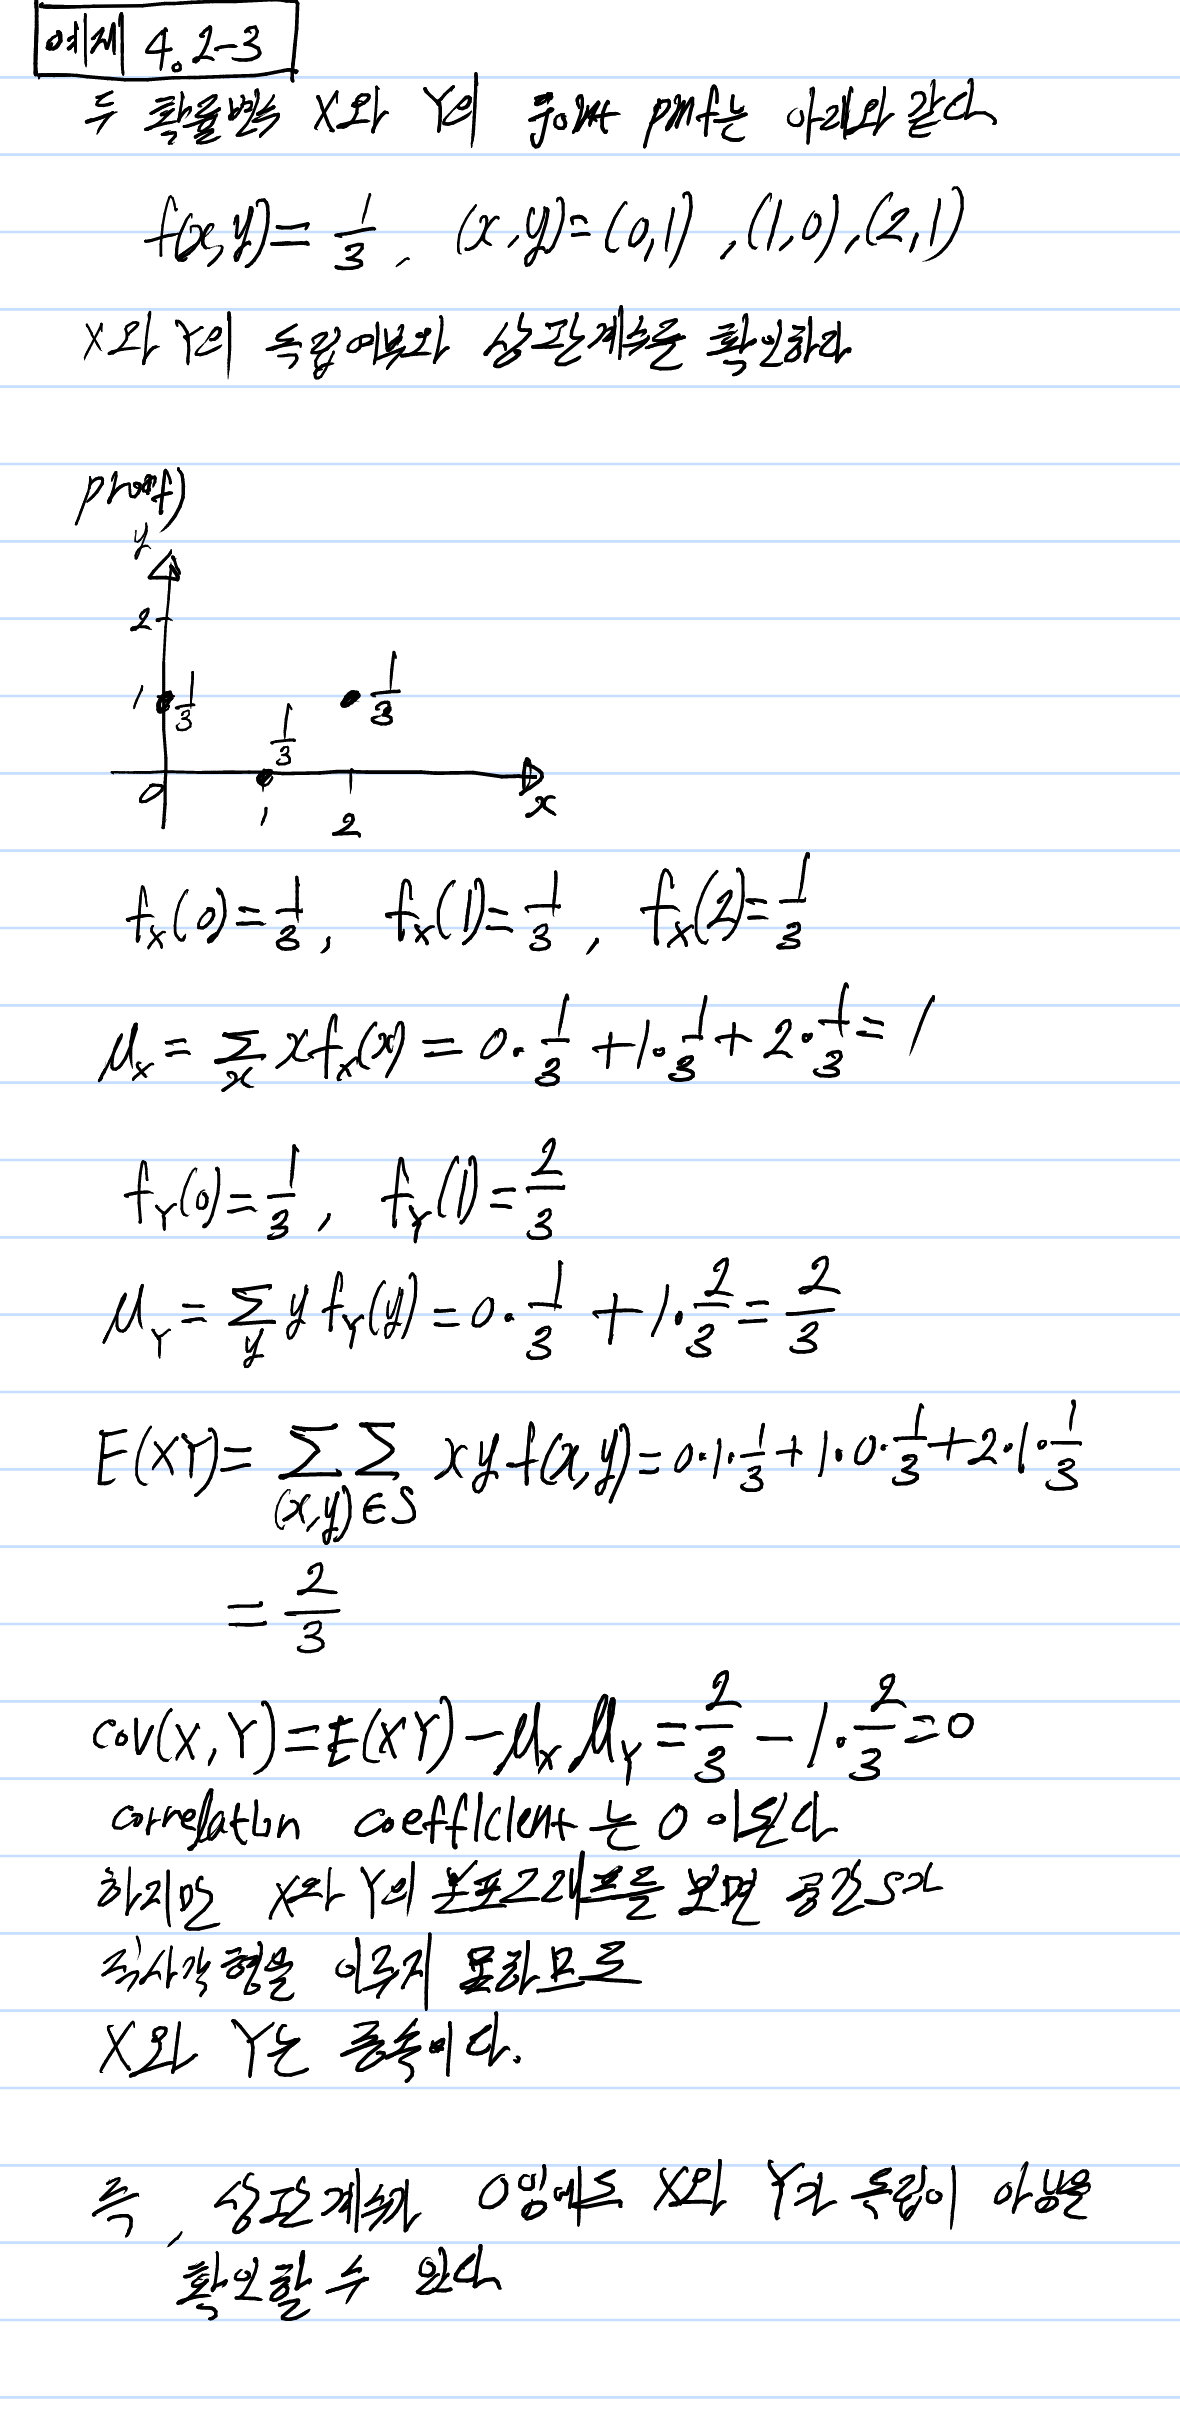 예제 4.2-3
두 확률변수 X와 Y의 joint pmf는 아래와 같다
f(x,y)= 1/3, (x,y)=(0,1),(1,0),(2,1)
X와 Y의 독립여부와 상관계수를 확인하라
proof)
y
2
1 1/3 1/3
1/3
0 1 2 x
f_X(0)=1/3, f_X(1)=1/3, f_X(2)=1/3
μ_X = Σ_x x f_X(x) = 0·1/3 + 1·1/3 + 2·1/3 = 1
f_Y(0)=1/3, f_Y(1)=2/3
μ_Y = Σ_y y f_Y(y) = 0·1/3 + 1·2/3 = 2/3
E(XY)= ΣΣ_(x,y)∈S xy f(x,y) = 0·1·1/3 + 1·0·1/3 + 2·1·1/3
= 2/3
cov(X,Y)=E(XY)-μ_X μ_Y = 2/3 - 1·2/3 = 0
correlation coefficient는 0이된다
하지만 X와 Y의 분포그래프를 보면 공간S가
직사각형을 이루지 못하므로
X와 Y는 종속이다.
즉, 상관계수가 0임에도 X와 Y가 독립이 아님을
확인할 수 있다